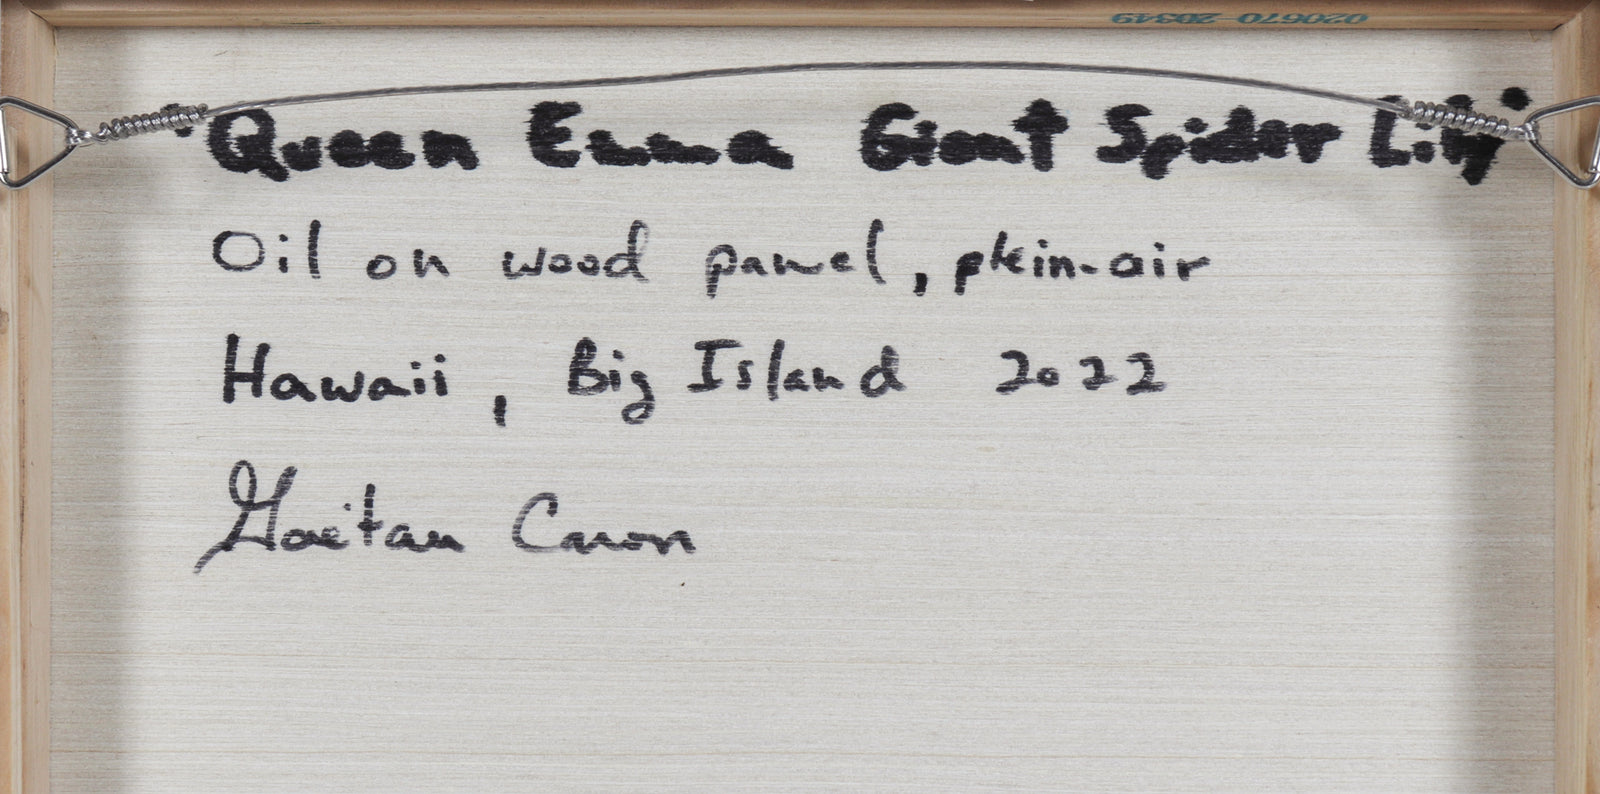 020670-20349
"Queen Emma Giant Spider Lily"
Oil on wood panel, plein-air
Hawaii, Big Island 2022
Gaëtan Caron